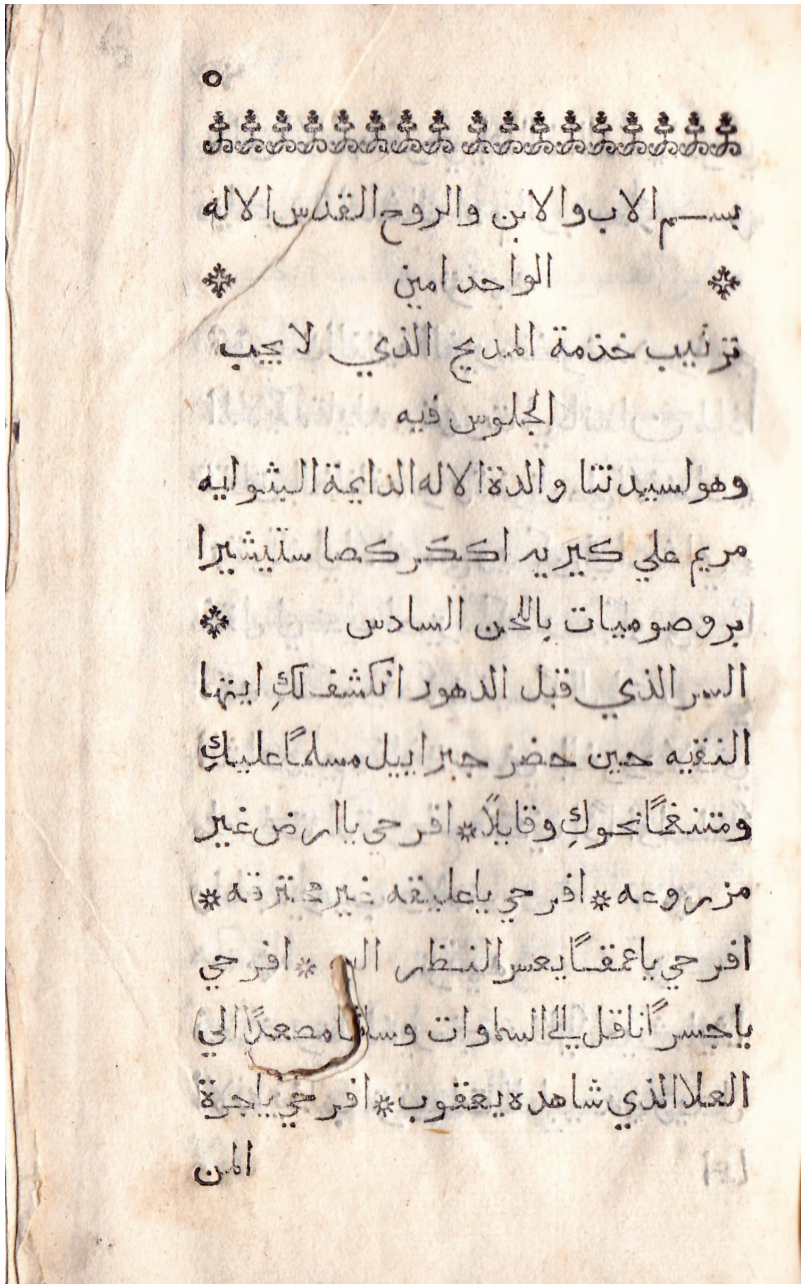 ٥
بسم الاب والابن والروح القدس الاله
الواحد امين
ترتيب خدمة المديح الذي لا يجب
الجلوس فيه
وهو لسيدتنا والدة الاله الدايمة البتوليه
مريم علي كيريه اككركصا ستيشيرا
بروصوميات باللحن السادس
السر الذي قبل الدهور انكشف لكِ ايتها
النقيه حين حضر جبراييل مسلماً عليكِ
ومتنغماً نحوكِ وقايلاً * افرحي يا ارض غير
مزروعه * افرحي يا عليقه غير محترقه *
افرحي يا عمقاً يعسر النظر * افرحي
يا جسراً ناقل الي السماوات مصعداً الي
العلا الذي شاهده يعقوب * افرحي يا جرة
المن